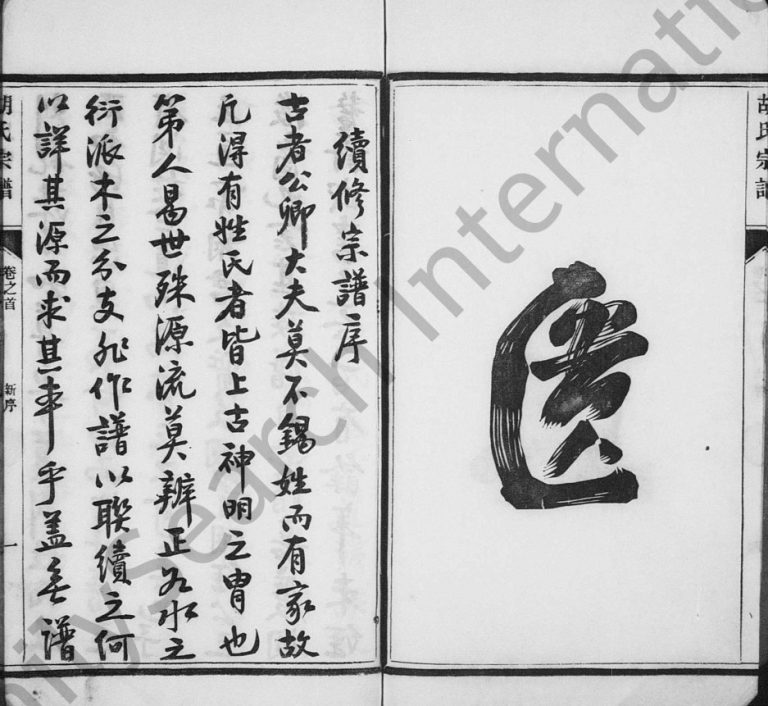 胡氏宗譜
匱
續修宗譜序
古者公卿大夫莫不錫姓而有家故
凡得有姓氏者皆上古神明之胄也
第人易世殊源流莫辨正如水之
衍派木之分支非作譜以聯續之何
以詳其源而求其本乎蓋無譜
胡氏宗譜
卷之首
新序
一
FamilySearch International